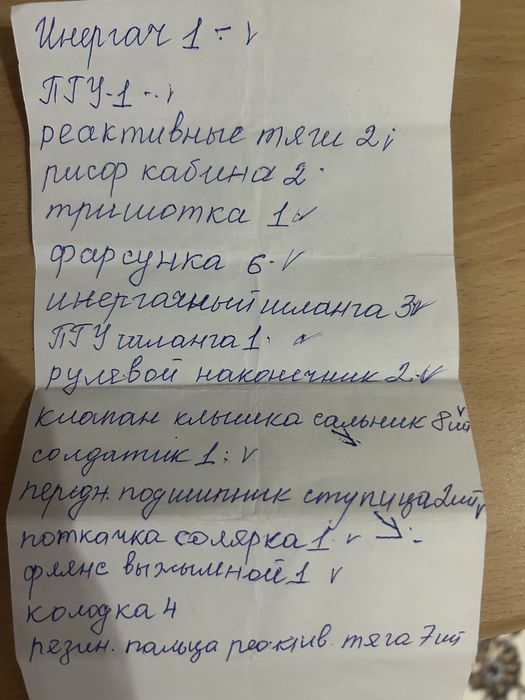 Инергач 1 -
ПГУ-1
реактивные тяги 2
рисор кабина 2
тришотка 1
фарсунка 6.
инергачный шланга 3
ПГУ шланга 1.
рулевой наконечник 2.
клапан клышка сальник 8 шт
солдатик 1:
передн. подшипник ступица 2 шт
поткачка солярка 1
флянс выжымной 1
колодка 4
резин. пальца реоктив. тяга 7 шт